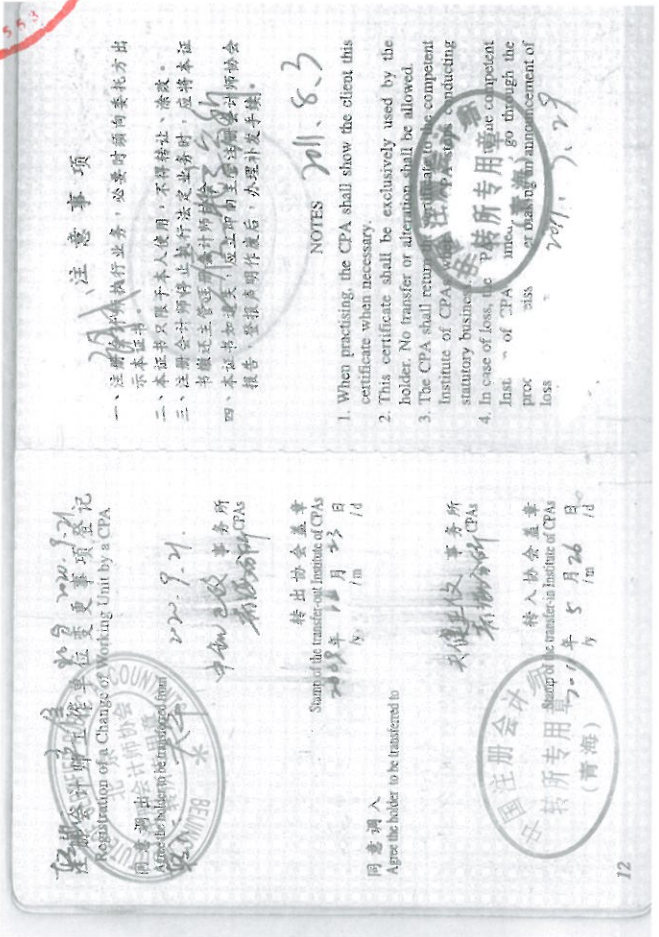 注册会计师工作单位变更事项登记
Registration of a Change of Working Unit by a CPA
2020.9.21.
同意调出
Agree the holder to be transferred from
2020.9.21.
事务所
CPAs
转出协会盖章
Stamp of the transfer-out Institute of CPAs
年 月 23 日
/y /m /d
同意调入
Agree the holder to be transferred to
事务所
CPAs
转入协会盖章
Stamp of the transfer-in Institute of CPAs
年 5 月 26 日
/y /m /d
北京注册会计师协会
转所专用章
BEIJING
中国注册会计师
转所专用章
(青海)
12
注意事项
一、注册会计师执行业务，必要时须向委托方出
示本证书。
二、本证书只限于本人使用，不得转让、涂改。
三、注册会计师停止执行法定业务时，应将本证
书缴还主管注册会计师协会。
四、本证书如遗失，应立即向主管注册会计师协会
报告，登报声明作废后，办理补发手续。
2011.8.3
NOTES
1. When practising, the CPA shall show the client this
certificate when necessary.
2. This certificate shall be exclusively used by the
holder. No transfer or alteration shall be allowed.
3. The CPA shall return the certificate to the competent
Institute of CPAs when the CPA stops conducting
statutory business.
4. In case of loss, the CPA the competent
Inst of CPA imme go through the
proc eiss er making an announcement of
loss
转所专用章
(青海)
553